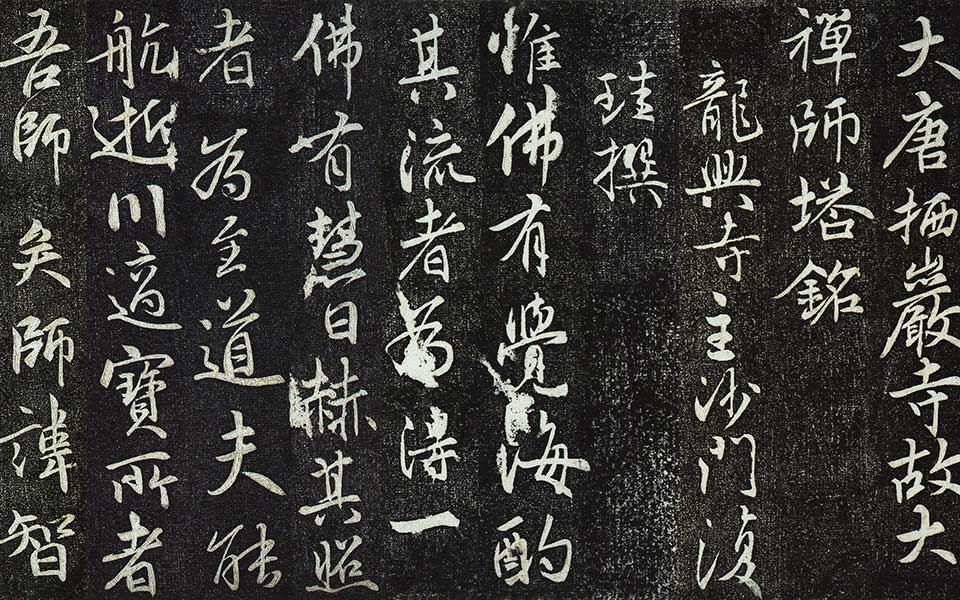 大唐栖巖寺故大
禪師塔銘
龍興寺主沙門復
珪撰
惟佛有覺海酌
其流者為得一
佛有慧日赫其照
者為至道夫能
航逝川適寶所者
吾師矣師諱智